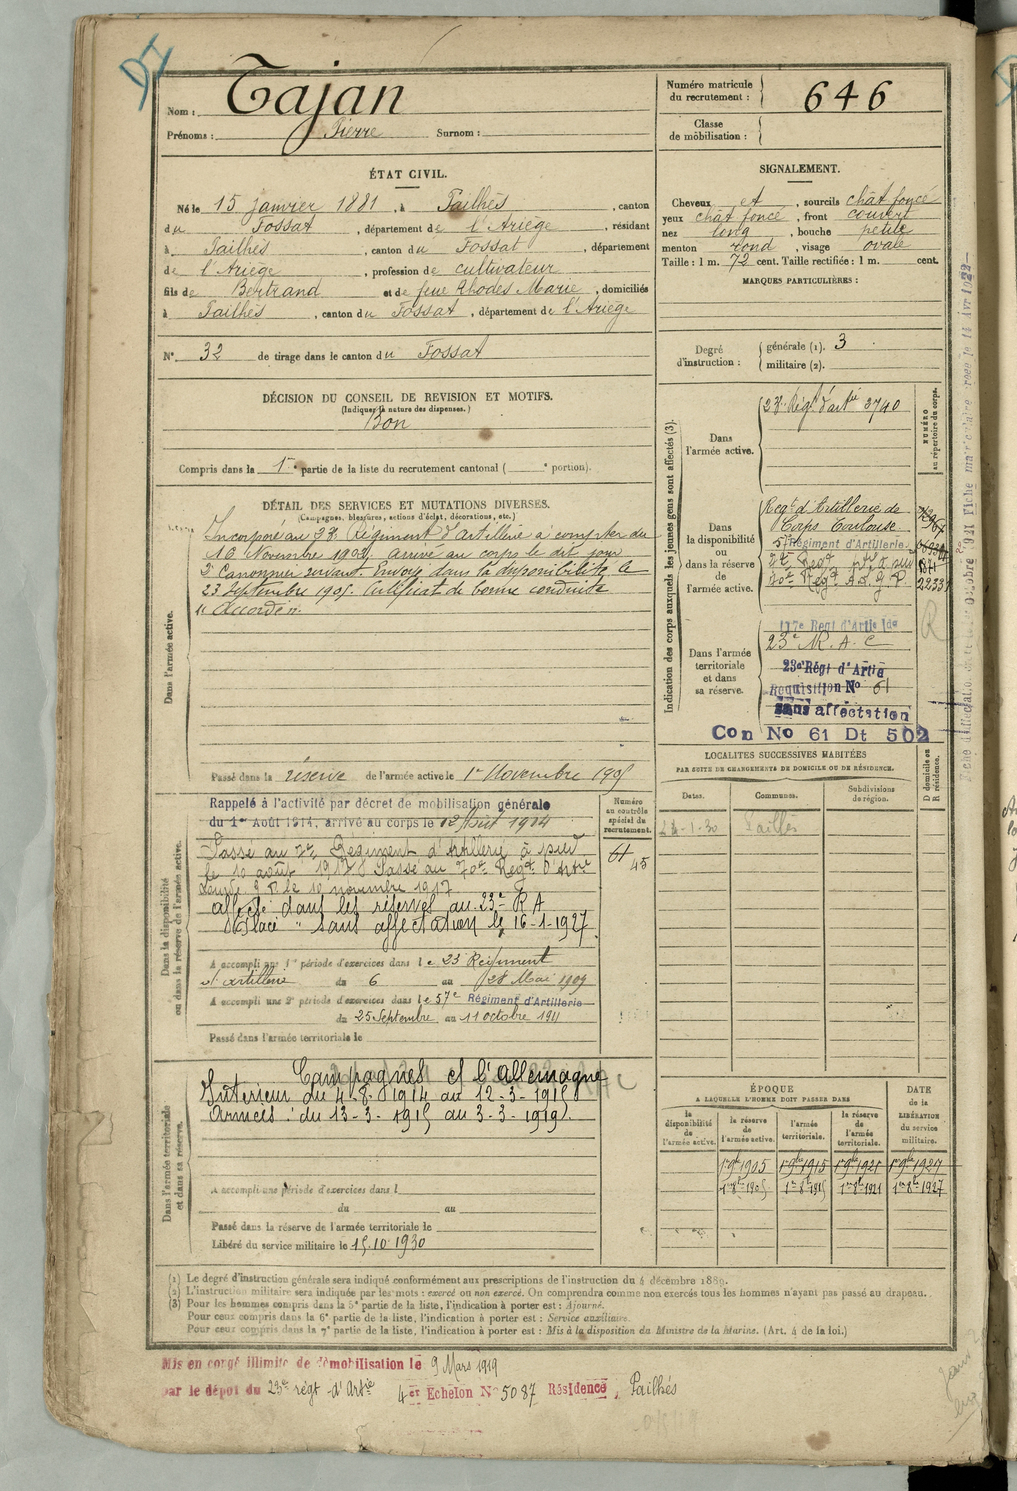 DI
Nom : Tajan
Prénoms : Pierre Surnom :
Numéro matricule du recrutement : 646
Classe de mobilisation :
ÉTAT CIVIL.
Né le 15 janvier 1881, à Pailhès, canton
du Fossat, département de l'Ariège, résidant
à Pailhès, canton du Fossat, département
de l'Ariège, profession de cultivateur
fils de Bertrand et de feue Rhodes Marie, domiciliés
à Pailhès, canton du Fossat, département de l'Ariège
N° 32 de tirage dans le canton du Fossat
SIGNALEMENT.
Cheveux et, sourcils chât foncé
yeux chât foncé, front couvert
nez long, bouche petite
menton rond, visage ovale
Taille : 1 m. 72 cent. Taille rectifiée : 1 m. cent.
MARQUES PARTICULIÈRES :
Degré d'instruction : générale (1). 3
militaire (2).
DÉCISION DU CONSEIL DE REVISION ET MOTIFS.
(Indiquer la nature des dispenses.)
Bon
Compris dans la 1re partie de la liste du recrutement cantonal ( e portion).
DÉTAIL DES SERVICES ET MUTATIONS DIVERSES.
(Campagnes, blessures, actions d'éclat, décorations, etc.)
Dans l'armée active.
Incorporé au 23e Régiment d'artillerie à compter du
16 Novembre 1902, arrivé au corps le dit jour
2e Canonnier servant. Envoyé dans la disponibilité le
23 Septembre 1905. Certificat de bonne conduite
"Accordé".
Passé dans la réserve de l'armée active le 1er Novembre 1905
Indication des corps auxquels les jeunes gens sont affectés (3).
NUMÉRO au répertoire du corps.
Dans l'armée active.
23e Régt d'artie 3740
Dans la disponibilité ou dans la réserve de l'armée active.
Regt d'Artillerie de
Corps Toulouse
57e Régiment d'Artillerie.
70e Regt A.L.G.P. 22331
Dans l'armée territoriale et dans sa réserve.
117e Regt d'Artie Lde
23e R.A.C
23e Régt d'Artie
Requisition N° 61
sans affectation
Con No 61 Dt 502
R
LOCALITÉS SUCCESSIVES HABITÉES
PAR SUITE DE CHANGEMENTS DE DOMICILE OU DE RÉSIDENCE.
D domicile ou R résidence.
Dates. Communes. Subdivisions de région.
24-1-30 Pailhès
Dans la disponibilité ou dans la réserve de l'armée active.
Numéro au contrôle spécial du recrutement.
61
45
Rappelé à l'activité par décret de mobilisation générale
du 1er Août 1914, arrivé au corps le 12 Août 1914
Passé au 2e Régiment d'Artillerie à pied
le 10 août 1917. Passé au 70e Régt d'Artie
Lourde G P le 10 novembre 1917
affecté dans les réserves au 23e R A
Classé "sans affectation" le 16-1-1927.
A accompli une 1re période d'exercices dans le 23e Régiment
d'artillerie du 6 au 28 Mai 1909
A accompli une 2e période d'exercices dans le 57e Régiment d'Artillerie
du 25 Septembre au 11 octobre 1911
Passé dans l'armée territoriale le
Dans l'armée territoriale et dans sa réserve.
Campagnes c/ l'allemagne
Intérieur du 4-8-1914 au 12-3-1915
Armées : du 13-3-1915 au 3-3-1919.
A accompli une période d'exercices dans l
du au
Passé dans la réserve de l'armée territoriale le
Libéré du service militaire le 15.10.1930
ÉPOQUE
A LAQUELLE L'HOMME DOIT PASSER DANS
DATE de la LIBÉRATION du service militaire.
la disponibilité de l'armée active. la réserve de l'armée active. l'armée territoriale. la réserve de l'armée territoriale.
1er 9bre 1905 1er 9bre 1915 1er 9bre 1921 1er 9bre 1927
1er 8bre 1905 1er 8bre 1915 1er 8bre 1921 1er 8bre 1927
(1) Le degré d'instruction générale sera indiqué conformément aux prescriptions de l'instruction du 4 décembre 1889.
(2) L'instruction militaire sera indiquée par les mots : exercé ou non exercé. On comprendra comme non exercés tous les hommes n'ayant pas passé au drapeau.
(3) Pour les hommes compris dans la 5e partie de la liste, l'indication à porter est : Ajourné.
Pour ceux compris dans la 6e partie de la liste, l'indication à porter est : Service auxiliaire.
Pour ceux compris dans la 7e partie de la liste, l'indication à porter est : Mis à la disposition du Ministre de la Marine. (Art. 4 de la loi.)
Mis en congé illimité de démobilisation le 9 Mars 1919
par le dépôt du 23e régt d'Artie 4er Echelon N° 5087 Résidence, Pailhès